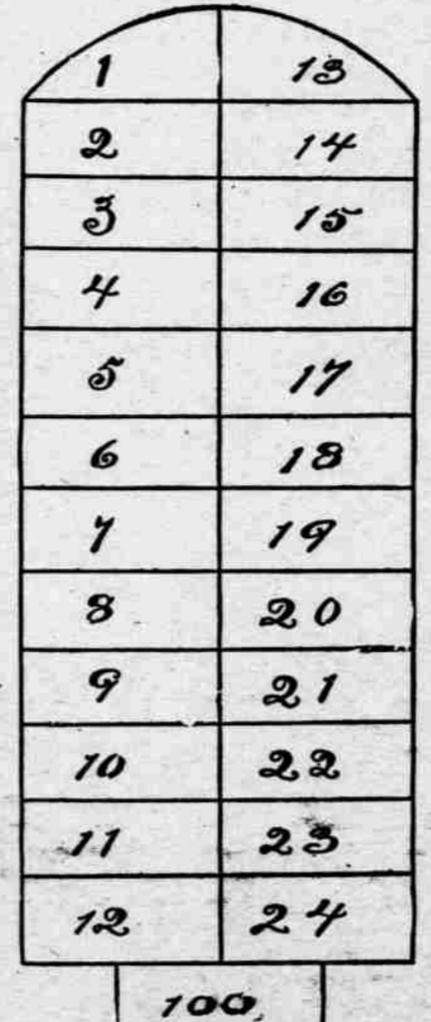 1 13
2 14
3 15
4 16
5 17
6 18
7 19
8 20
9 21
10 22
11 23
12 24
100